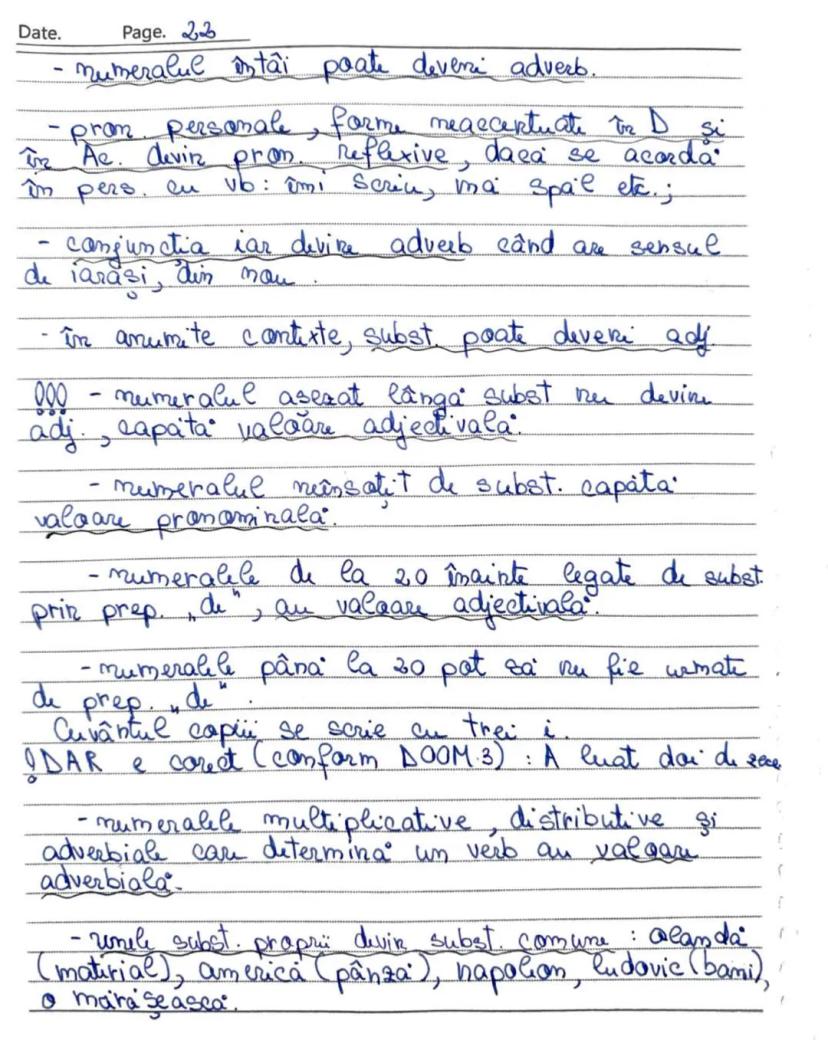 Date. Page. 22
- numeralul întâi poate deveni adverb.
- pron. personale, forme neaccentuate în D și
în Ac. devin pron. reflexive, dacă se acordă
în pers. cu vb: îmi scriu, mă spăl etc.;
- conjuncția iar devine adverb când are sensul
de iarăși, din nou.
- în anumite contexte, subst. poate deveni adj.
!!! - numeralul asezat lângă subst nu devine
adj., capătă valoare adjectivală.
- numeralul neînsoțit de subst. capătă
valoare pronominală.
- numeralele de la 20 înainte legate de subst.
prin prep. „de", au valoare adjectivală.
- numeralele până la 20 pot să nu fie urmate
de prep. „de".
Cuvântul copiii se scrie cu trei i.
! DAR e corect (conform DOOM.3) : A luat doi de zece
- numeralele multiplicative, distributive și
adverbiale care determină un verb au valoare
adverbială.
- unele subst. proprii devin subst. comune : olandă
(material), americă (pânză), napoleon, ludovic (bani),
o mărășească.